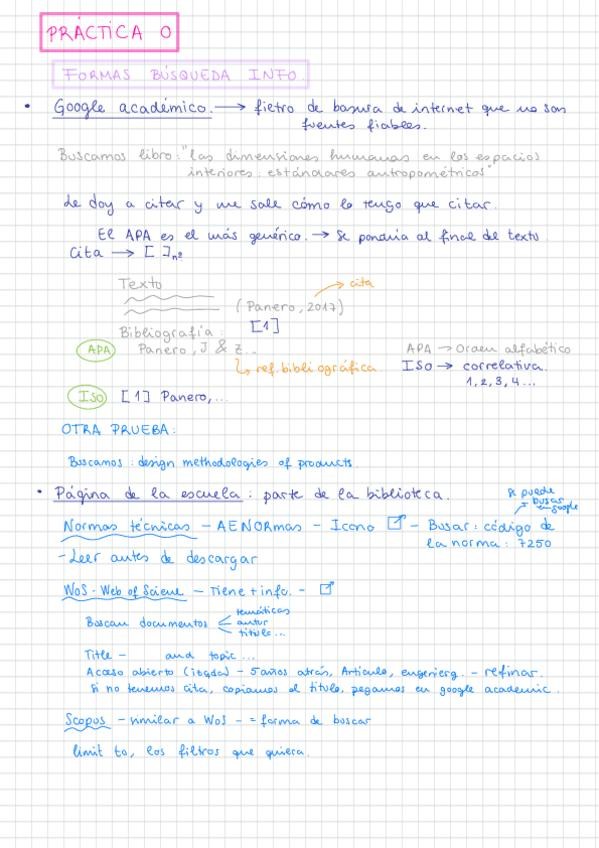 PRÁCTICA 0
FORMAS BÚSQUEDA INFO.
• Google académico. → fietro de basura de internet que no son
fuentes fiables.
Buscamos libro: "las dimensiones humanas en los espacios
interiores: estándares antropométricos"
Le doy a citar y me sale cómo lo tengo que citar.
El APA es el más genérico. → Se pondría al final del texto.
Cita → [ ]nº
Texto
cita
(Panero, 2017)
[1]
Bibliografía:
APA Panero, J & Z...
ref. bibliográfica
APA → Orden alfabético
ISO → correlativa.
1, 2, 3, 4...
ISO [1] Panero,...
OTRA PRUEBA:
Buscamos: design methodologies of products.
• Página de la escuela: parte de la biblioteca.
Se puede
buscar
en google
Normas técnicas - AENORmas - Icono - Busar: código de
la norma: 7250
- Leer antes de descargar
WoS - Web of Sciene - Tiene + info. -
Buscan documentos
temáticas
autor
título...
Title - and topic...
Acceso abierto (itqdo) - 5 años atrás, Artículo, engenierg. - refinar.
Si no tenemos cita, copiamos el título, pegamos en google academic.
Scopus - similar a WoS - = forma de buscar
limit to, los filtros que quiera.